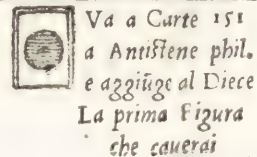 Va a Carte 151
a Antistene phil.
e aggiũge al Diece
La prima Figura
che cauerai